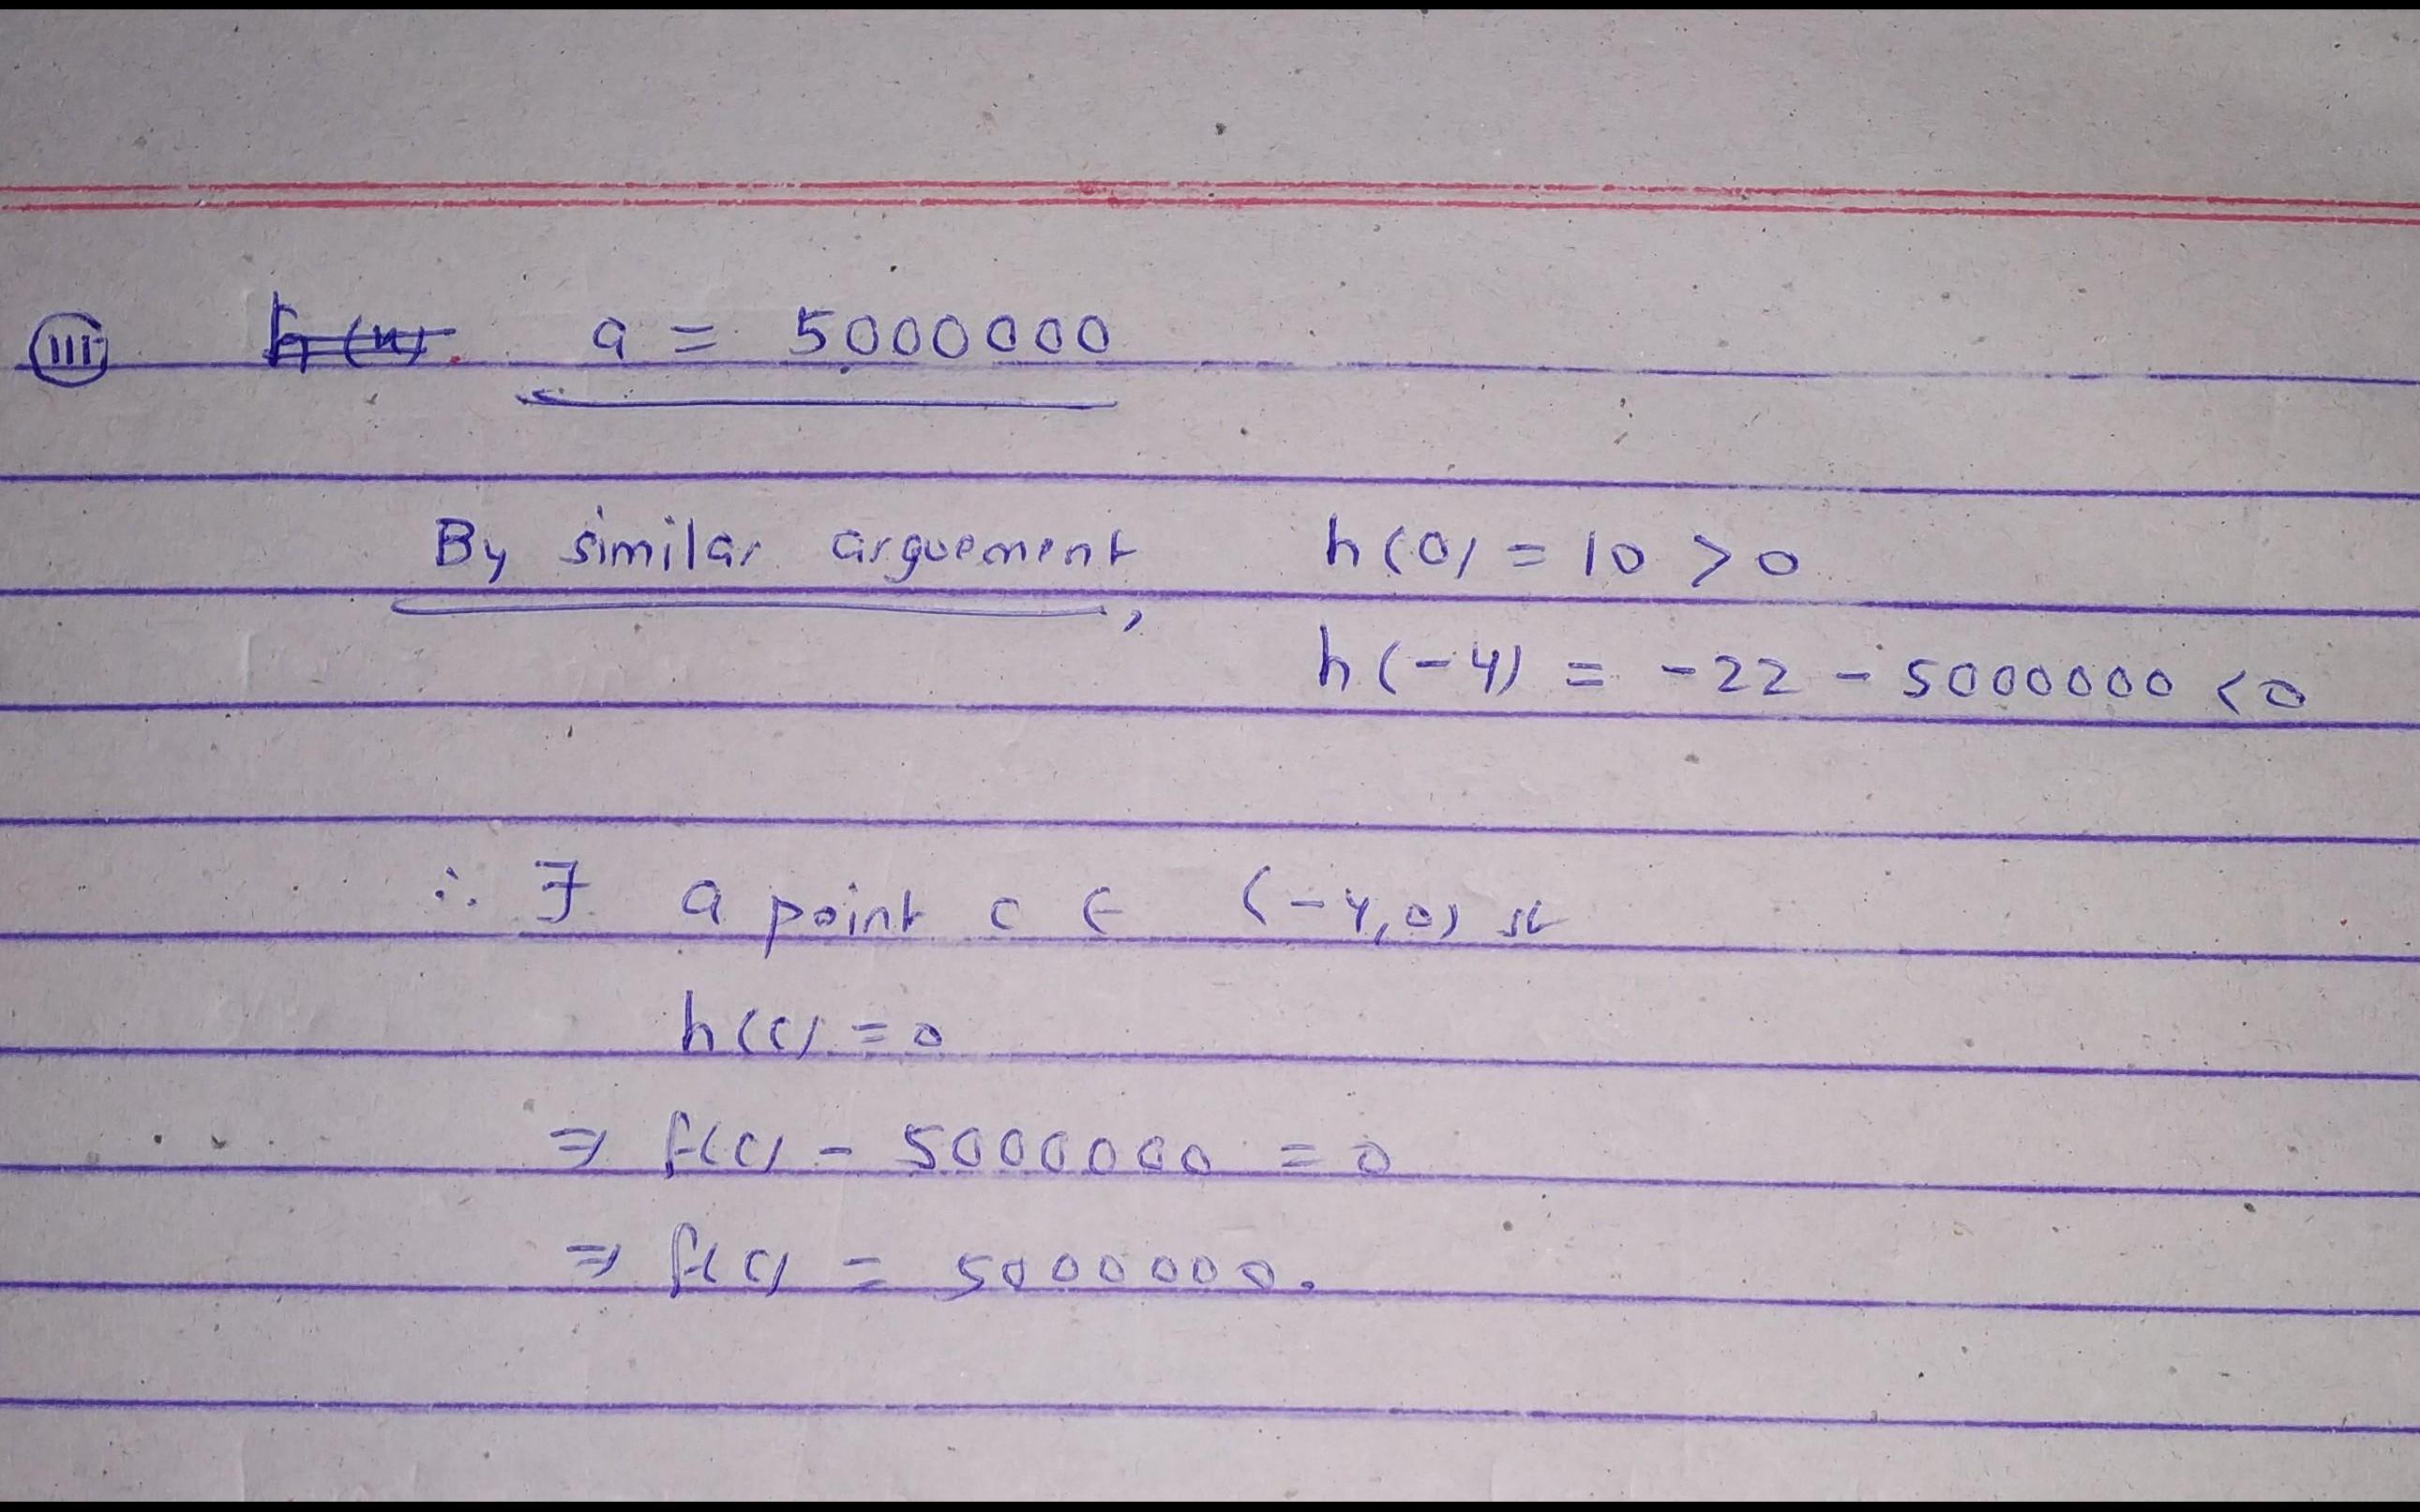 (III) h(x). a = 5000000
By similar arguement, h(0) = 10 > 0
h(-4) = -22 - 5000000 < 0
∴ ∃ a point c ∈ (-4,0) st
h(c) = 0
⇒ f(c) - 5000000 = 0
⇒ f(c) = 5000000.